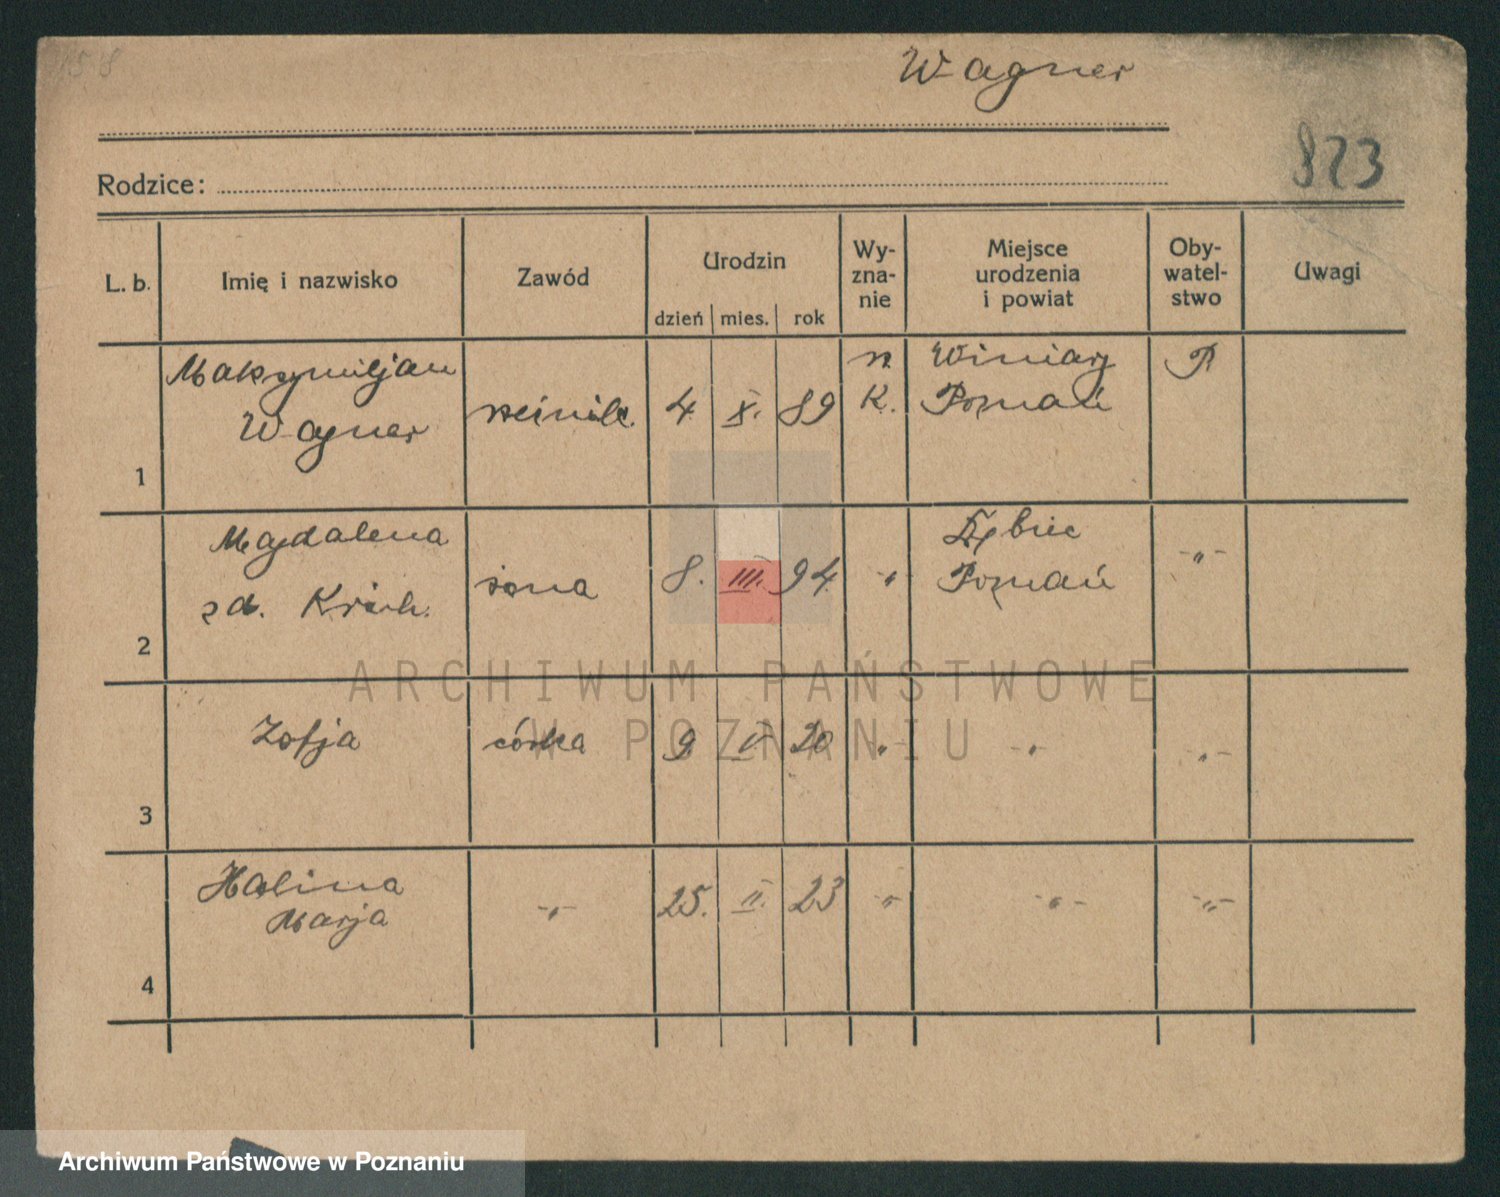 158
Wagner
823
Rodzice:
L. b. Imię i nazwisko Zawód Urodzin dzień mies. rok Wy-zna-nie Miejsce urodzenia i powiat Oby-watel-stwo Uwagi
Maksymiljan r. Winiary P
Wagner 4. X. 89 K. Poznań
1
Magdalena Dębiec -„-
zd. żona 8. III. 94. „ Poznań
2
ARCHIWUM PAŃSTWOWE
W POZNANIU
Zofja córka 9. V 20 „ -„- „-
3
Halina -„- 25. II. 23 -„- -„- -„-
Marja
4
Archiwum Państwowe w Poznaniu